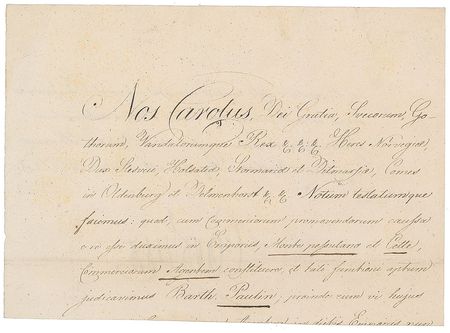 Nos Carolus, Dei Gratia, Svecorum, Go-
thorum, Vandalorumque Rex &. &. &. Heres Norvegiæ,
Dux Slesvici, Holsatiæ, Stormariæ et Ditmarsiæ, Comes
in Oldenburg et Delmenhorst &. &. Notum testatumque
facimus: quod, cum Commerciorum promovendorum caussa
e re esse duximus in Emporiis, Monte pessulano et Cette,
Commerciorum constituere, et tali functioni aptum
judicavimus Barth. Paulin, proinde eum vi hujus